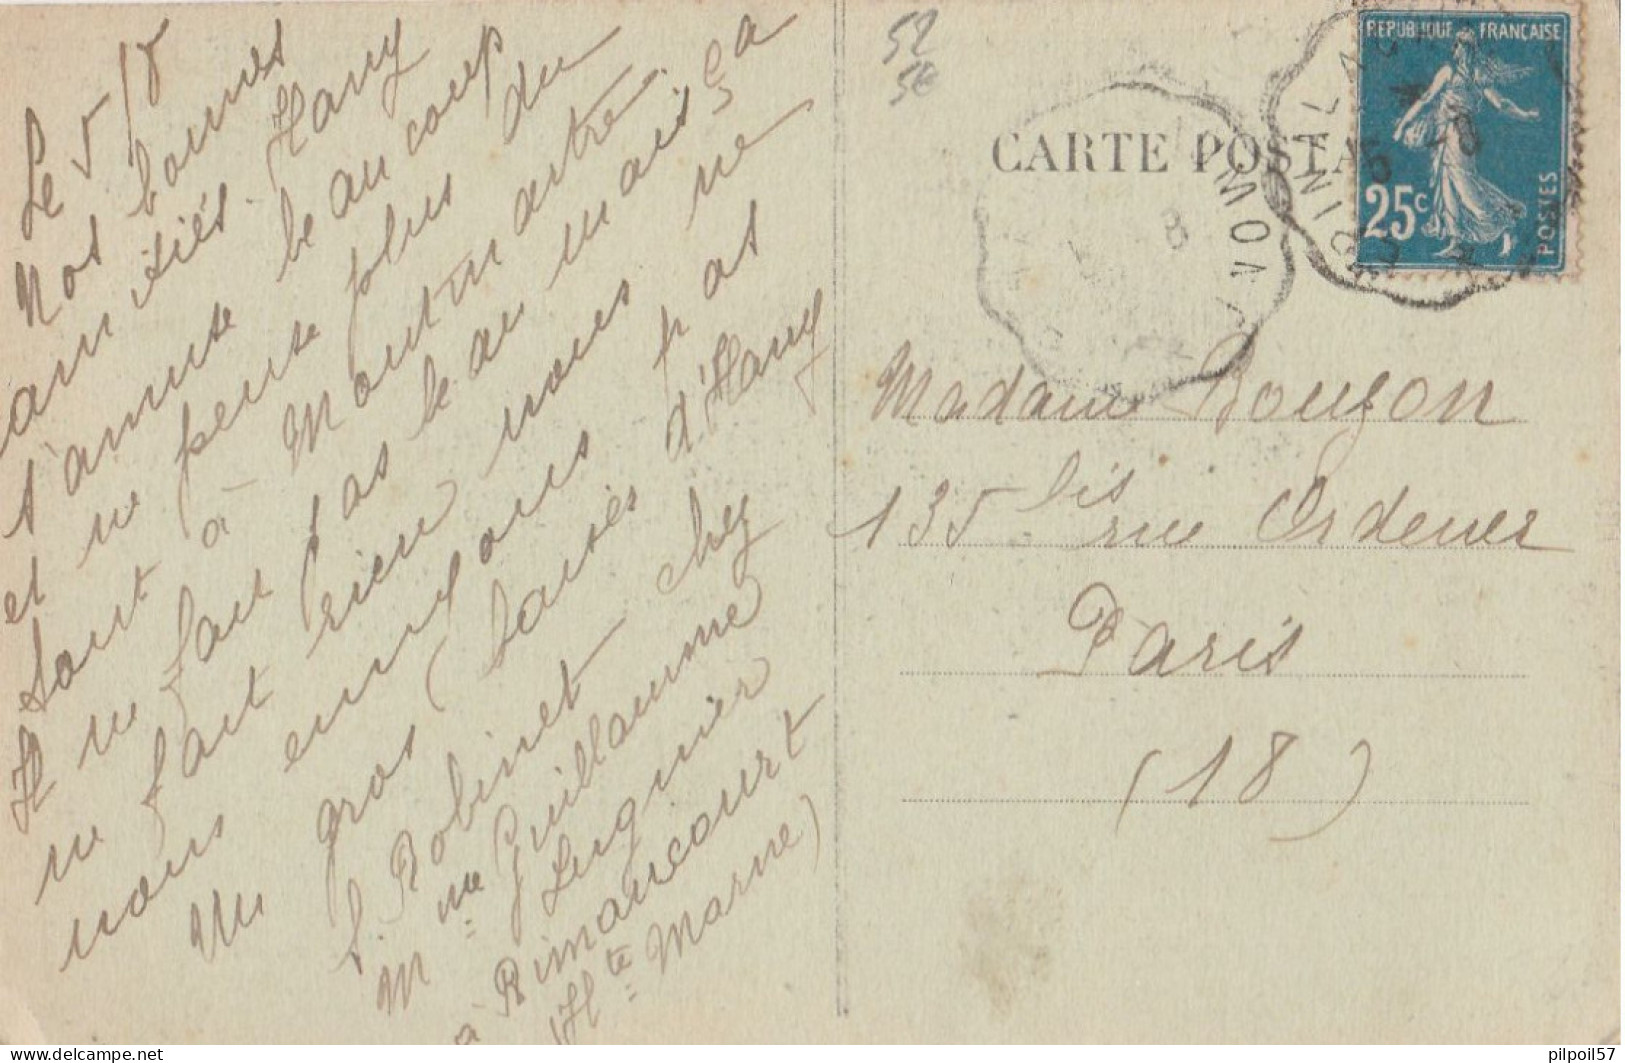 Le 5/8
Nos bonnes
amitiés. Hany
s'amuse beaucoup
et ne pense plus du
tout à Montmartre.
Il ne faut pas le au mais ça
ne fait rien nous ne
nous ennuyons pas
Un gros baisés d'Hany
S. Robinet chez
Mme Guillaume
Luquier
à Rimaucourt
(Hte Marne)
52
50
CARTE POSTA
REPUBLIQUE FRANÇAISE
25c
POSTES
Madame Bouzon
135 bis rue Ordener
Paris
(18)
pilpoil57